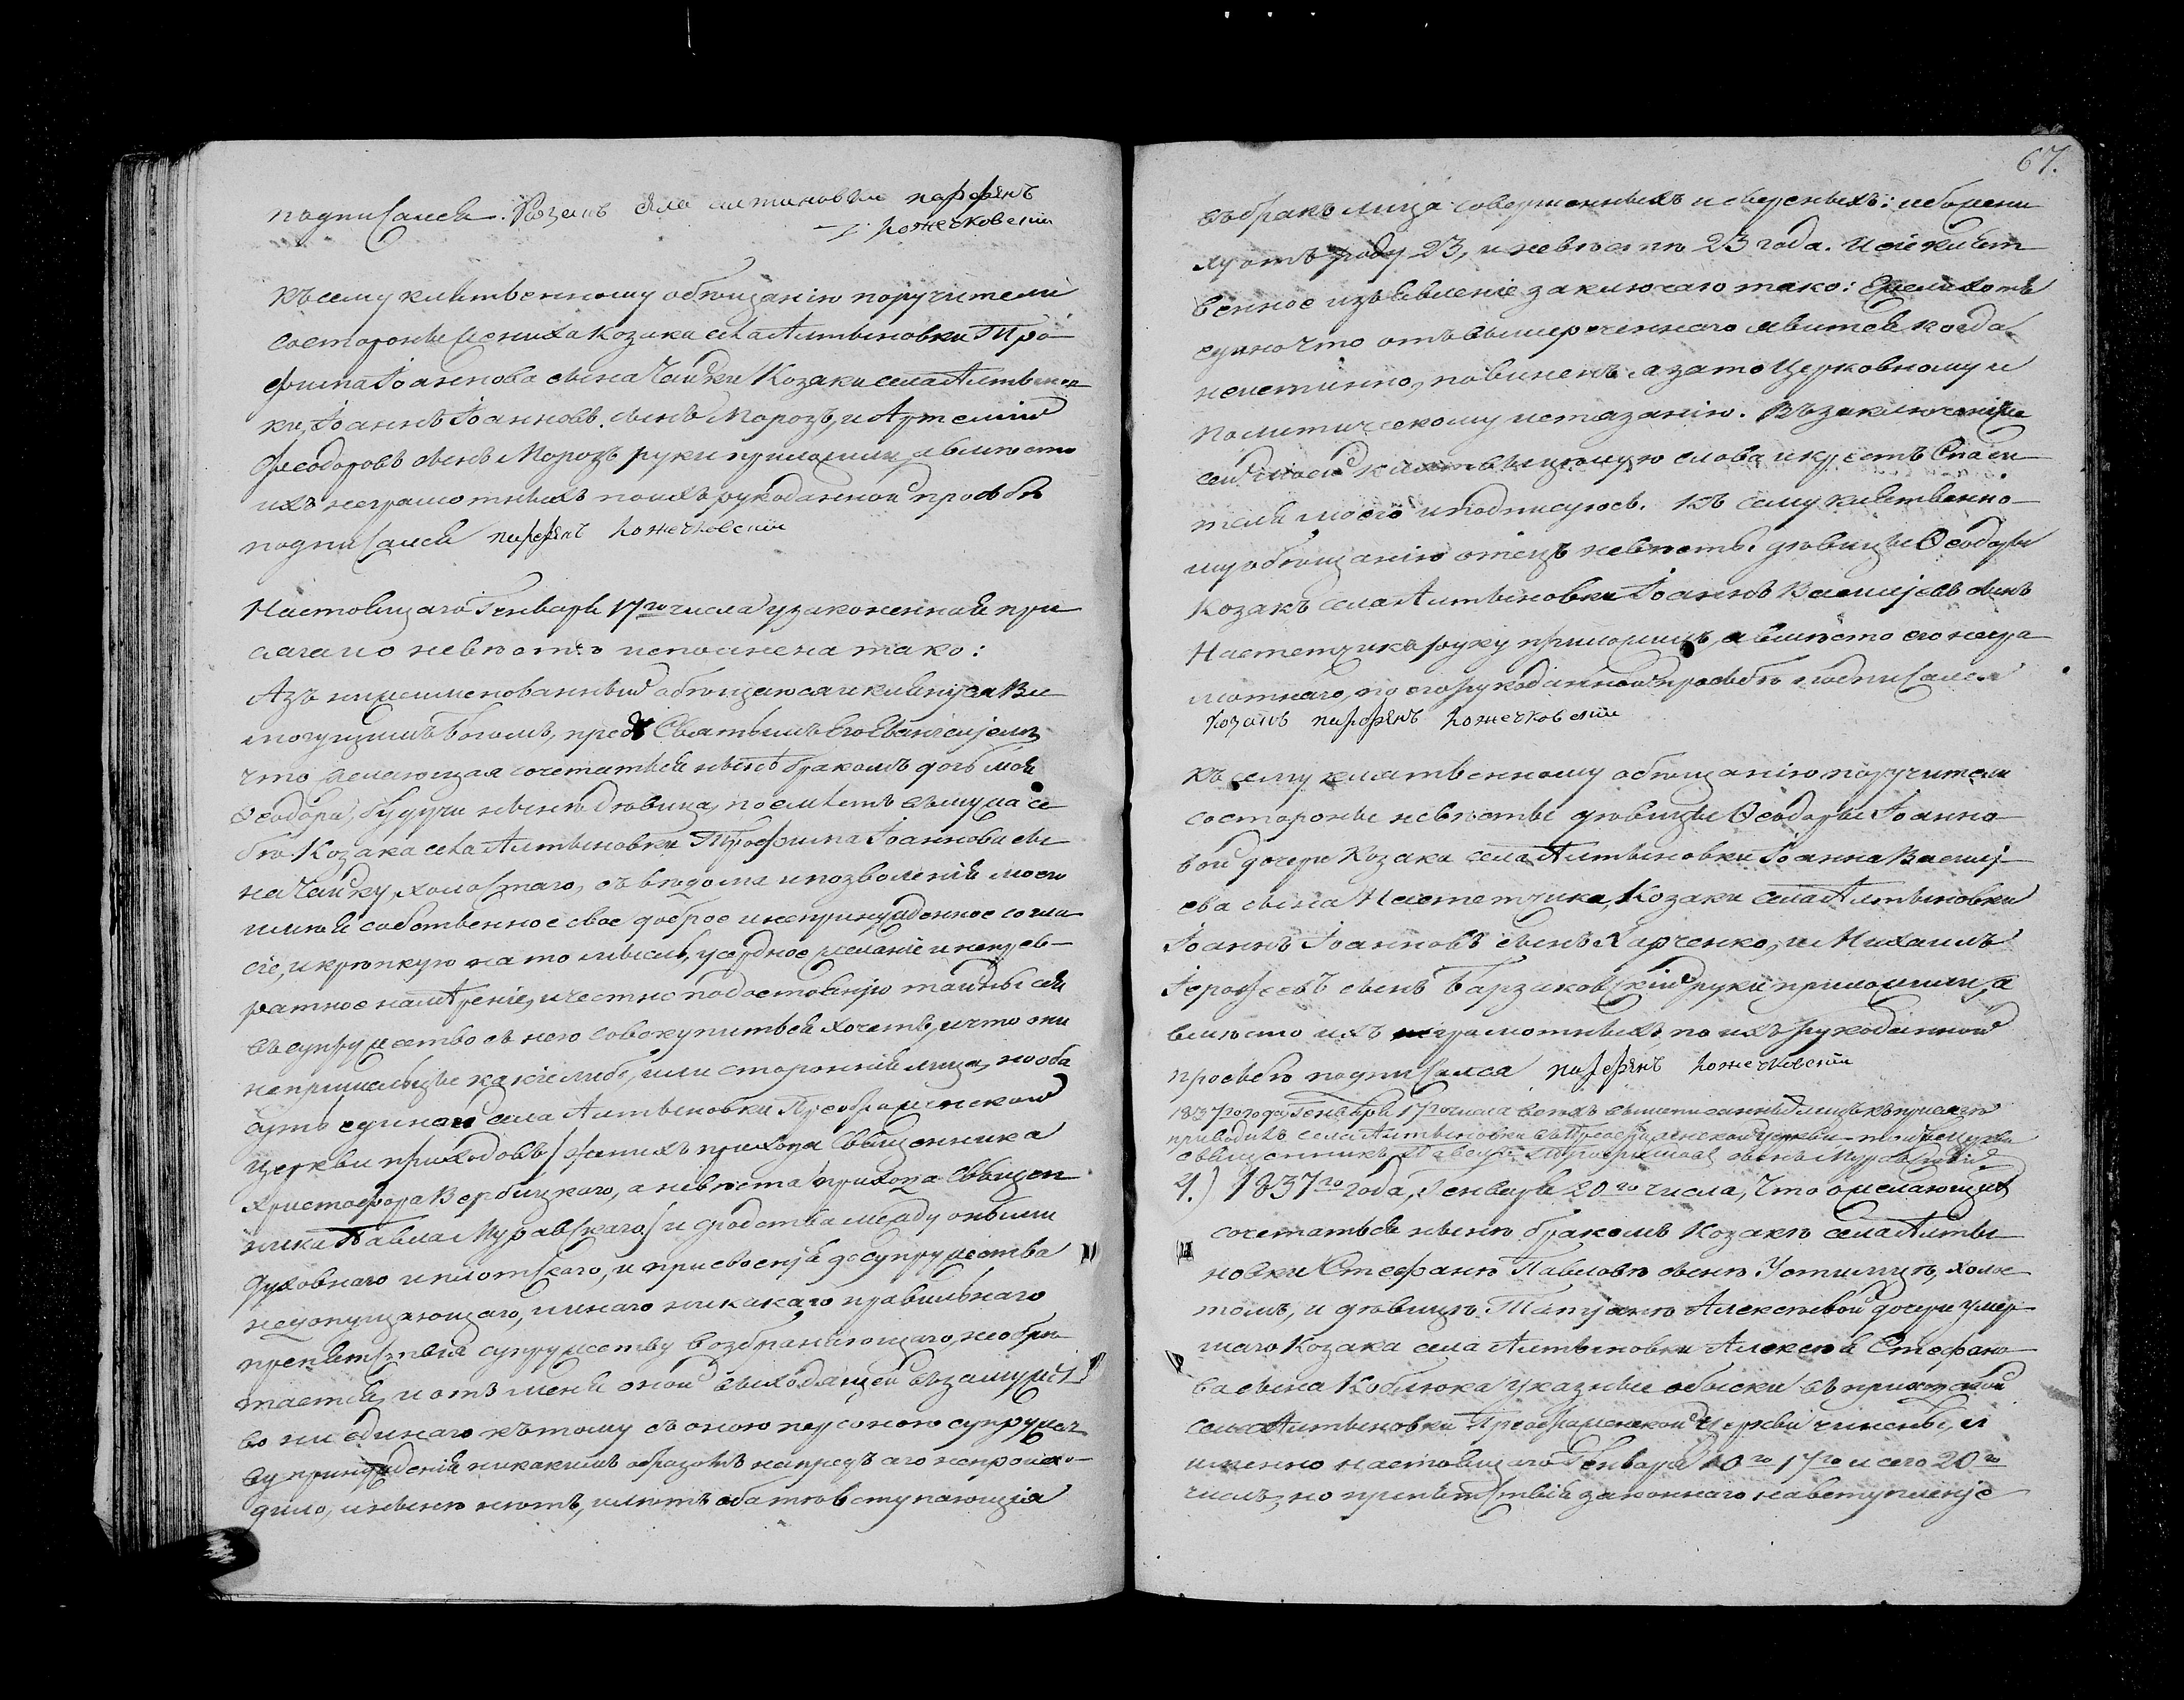 подписался. Козакъ села алтиновки парфѣнъ
кожечковскій
Къ сему клятвенному обѣщанію поручители
состороны жениха Козака села Алтыновки Тро-
фима Іоаннова сына Чайки Козаки села Алтынов-
ки, Іоаннъ Іоанновъ сынъ Морозъ, и Артемій
Феодоровъ сынъ Морозъ руки приложили, а вмѣсто
ихъ неграмотныхъ по ихъ рукоданной прозбѣ
подписался парфѣнъ кожечковскій
Настоящаго Генваря 17го числа узаконенная при
сяга по невѣстѣ исполнена тако:
Азъ нижеименованный обѣщаюся и клянуся Все
могущимъ Богомъ, предъ Святымъ Его Евангеліемъ
что желающая сочетатися нынѣ бракомъ дочь моя
Ѳеодора, будучи нынѣ дѣвица, поемлетъ въ мужа се
бѣ Козака села Алтыновки Трофима Іоаннова сы
на Чайку, холостаго, съ вѣдома и позволенія моего
имѣя собственное свое доброе и непринужденное согла
сіе, и крѣпкую на то мысль, усердное желаніе и непрев-
ратное намѣреніе, и честно по достоянію тайны сея
въ супружество съ него совокупиться хочетъ, и что они
не пришельцы какіе либо, или сторонніе лица, но оба
суть единой села Алтыновки Преображенской
церкви приходовъ/ женихъ прихода Священника
Христофора Вербицкаго, а невѣста прихода Священ
ника Павла Муравскаго/ и сродства между оными
духовнаго и плотскаго, и присвоенія до супружества
недопущающаго, и инаго никакаго правильнаго
препятствія супружеству возбраняющаго, не обрѣ
тается, и отъ меня оной выходящей въ замужст
во ни единаго къ тому съ оною персоною супружест
ву принужденія никакимъ образомъ напредъ сего не происхо-
дило, и нынѣ нѣтъ, и лѣтъ оба то вступающія
67.
въ бракъ лица совершенныхъ и сверсныхъ: и б жени
ху отъ роду 23, и невѣстѣ 23 года. И сіе клят
венное изъявленіе заключаю тако: Ежели хотя
едино что отъ вышереченнаго явится когда
неистинно, повиненъ я за то Церковному и
политическому истязанію. Въ заключеніе
сей моей клятвы цѣлую слова и крестъ Спаси
теля моего и подписуюсь. Къ сему клятвенно-
му обѣщанію отецъ невѣсты дѣвицы Ѳеодоры
Козакъ села Алтыновки Іоаннъ Василіевъ сынъ
руку приложилъ, а вмѣсто его негра
мотнаго, по его рукоданной прозьбѣ подписался
козакъ парфѣнъ кожечковскій
Къ сему клятвенному обѣщанію поручители
состороны невѣсты дѣвицы Ѳеодоры Іоанно-
вой дочери Козака села Алтыновки Іоанна Васил-
ева сына, Козаки села Алтыновки
Іоаннъ Іоанновъ сынъ Харченко, и Михаилъ
Іерофеевъ сынъ Барзаковскій руки приложили, а
вмѣсто ихъ неграмотныхъ по ихъ рукоданной
прозьбѣ подписался парфѣнъ кожечковскій
1837го года, Генваря 17го числа всѣхъ вышеписанныхъ лицъ къ присягѣ
приводилъ села Алтыновки въ Преображенской Церкви тоя жъ Церкви
священникъ Павелъ сынъ Муравскій
4.) 1837го года, Генваря 20го числа, Что о желающихъ
сочетаться нынѣ бракомъ Козакѣ села Алты
новки Стефанѣ Павловѣ сынѣ, холос
томъ, и дѣвицѣ Татіанѣ Алексѣевой дочери умер
шаго Козака села Алтыновки Алексѣя Стефано
ва сына Коблюка указные обыски въ приходской
села Алтыновки Преображенской Церкви чинены, и
именно настоящаго Генваря 10го 17го и сего 20го
числъ, но препятствія законнаго на вступленіе